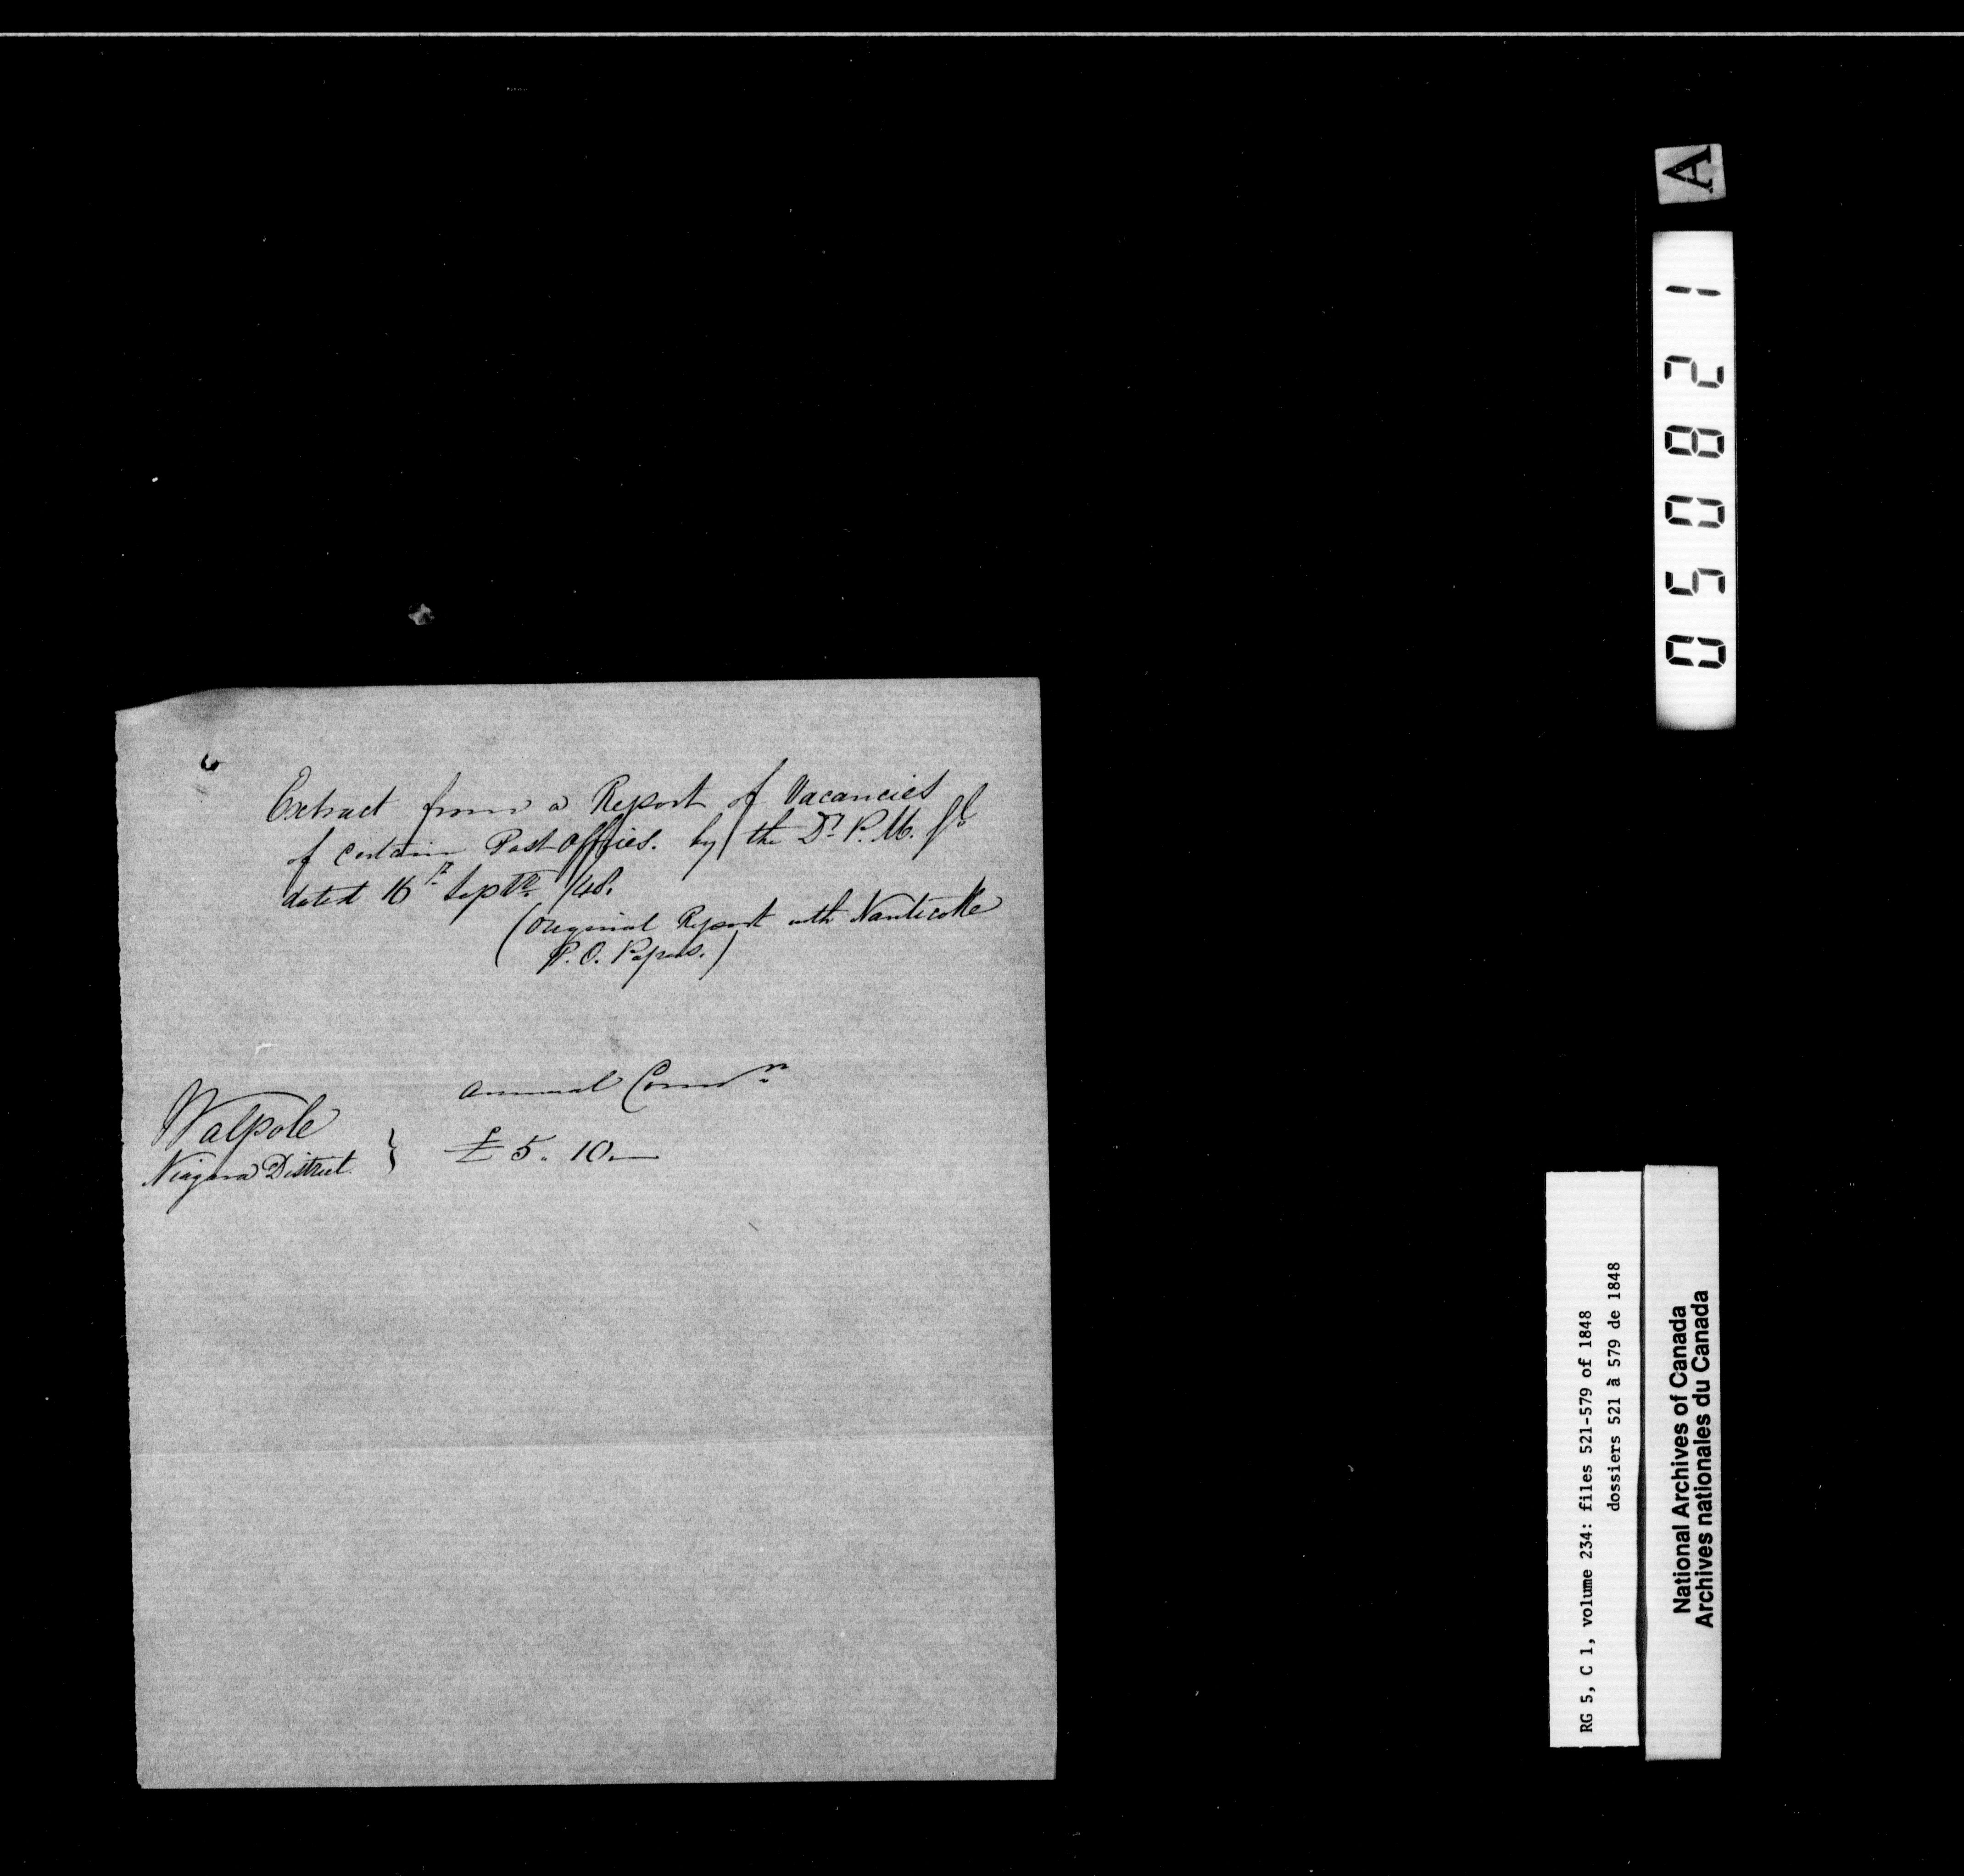 Extract from a Report of Vacancies
of certain Post Offices. by the Dy. P. M. Gl
dated 16th Septr. /48.
(Original Report with Nanticoke
P.O. Papers.)
Annual Commn
Walpole
Niagara District } £5. 10.—
A
050821
RG 5, C 1, volume 234: files 521-579 of 1848
dossiers 521 à 579 de 1848
National Archives of Canada
Archives nationales du Canada